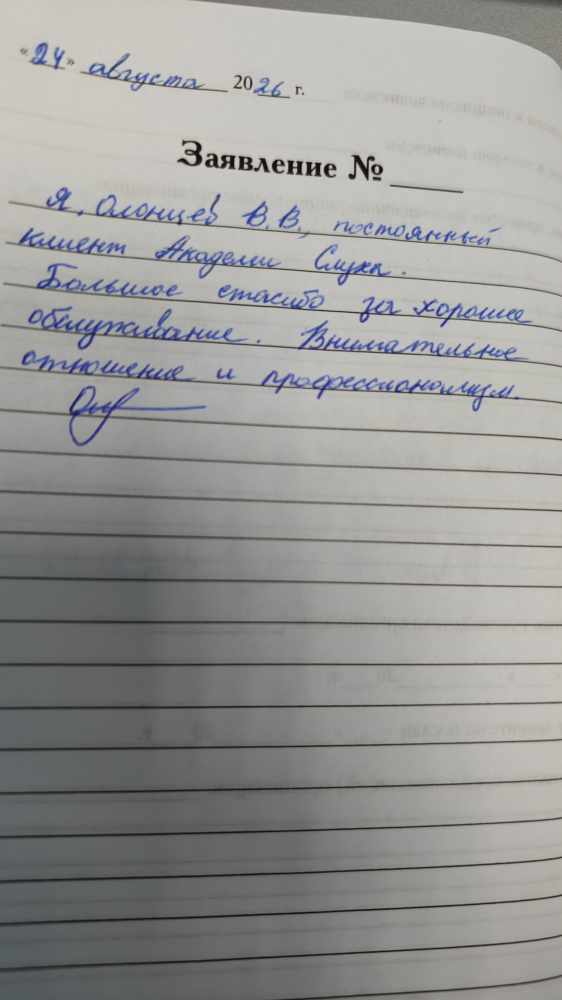 «24» августа 2026 г.
Заявление № ____
Я, Олонцев В.В., постоянный
клиент Академии Слуха.
Большое спасибо за хорошее
обслуживание. Внимательное
отношение и профессионализм.